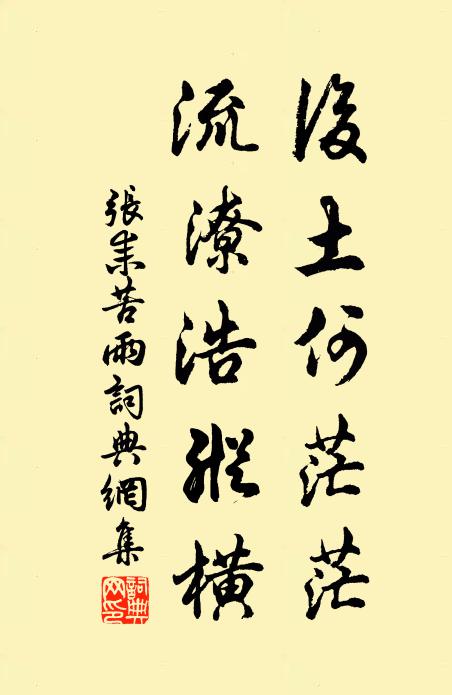 後土何茫茫
流潦浩縱橫
張耒苦雨詞典網集
詞典
网印